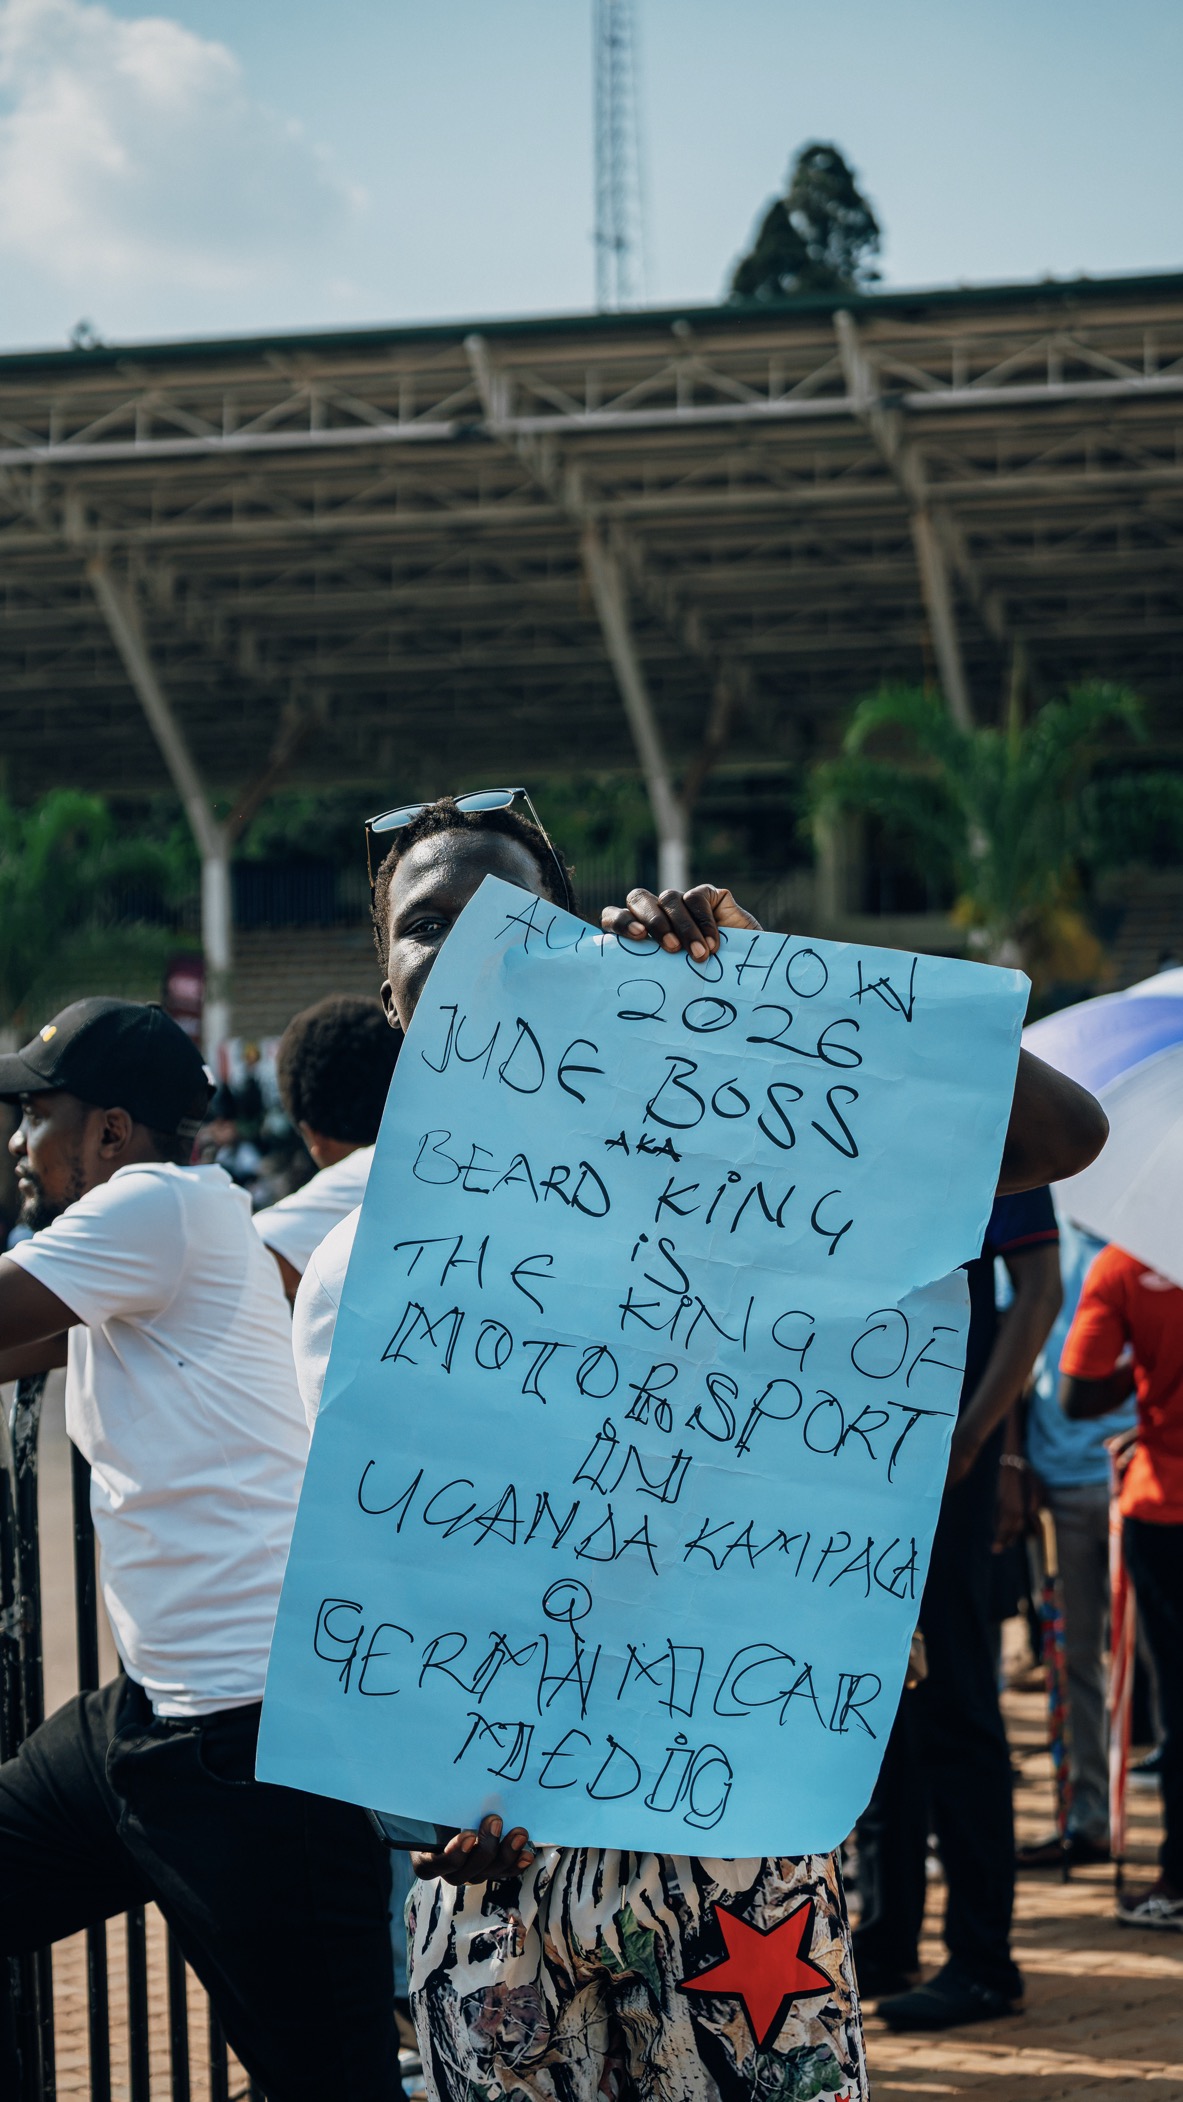 AUTO SHOW
2026
JUDE BOSS
AKA
BEARD KiNG
iS
THE KiNG OF
MOTORSPORT
iN
UGANDA KAMPALA
@
GERMAN CAR
MEDiG